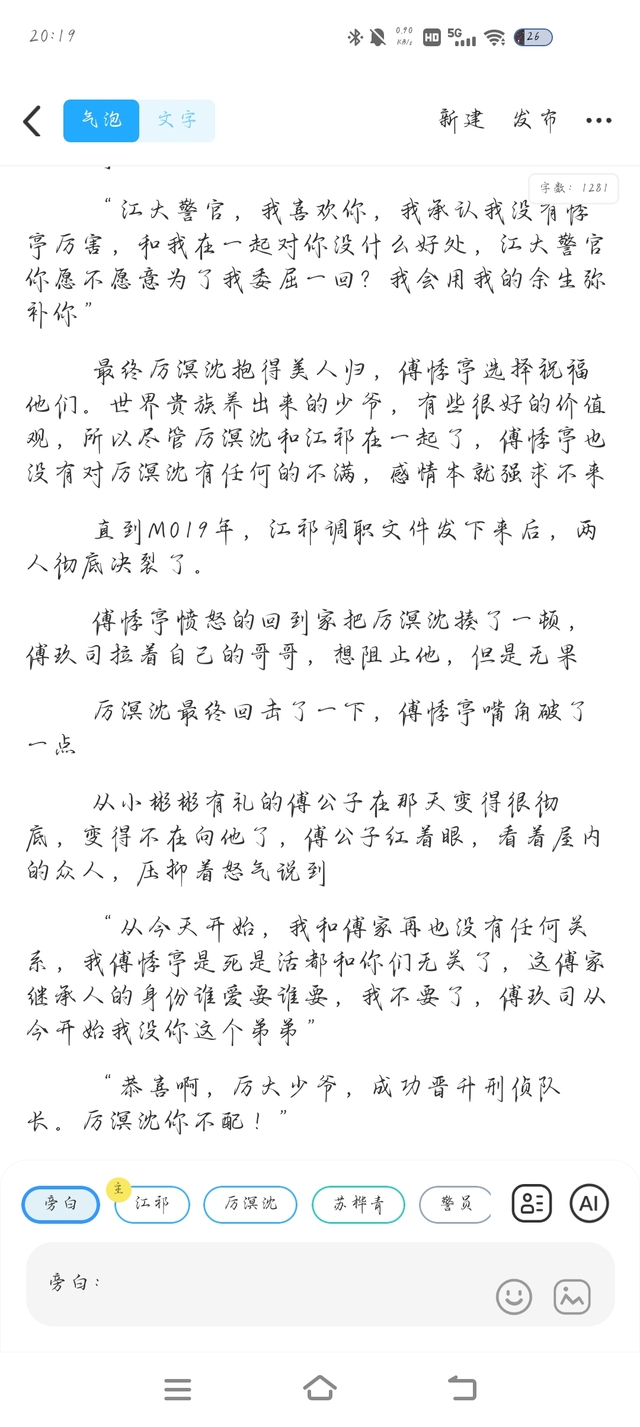 20:19
0.90
KB/s
HD
5G
26
气泡
文字
新建
发布
字数：1281
“江大警官，我喜欢你，我承认我没有悸
亭厉害，和我在一起对你没什么好处，江大警官
你愿不愿意为了我委屈一回？我会用我的余生弥
补你”
最终厉溟沈抱得美人归，傅悸亭选择祝福
他们。世界贵族养出来的少爷，有些很好的价值
观，所以尽管厉溟沈和江祁在一起了，傅悸亭也
没有对厉溟沈有任何的不满，感情本就强求不来
直到M019年，江祁调职文件发下来后，两
人彻底决裂了。
傅悸亭愤怒的回到家把厉溟沈揍了一顿，
傅玖司拉着自己的哥哥，想阻止他，但是无果
厉溟沈最终回击了一下，傅悸亭嘴角破了
一点
从小彬彬有礼的傅公子在那天变得很彻
底，变得不在向他了，傅公子红着眼，看着屋内
的众人，压抑着怒气说到
“从今天开始，我和傅家再也没有任何关
系，我傅悸亭是死是活都和你们无关了，这傅家
继承人的身份谁爱要谁要，我不要了，傅玖司从
今开始我没你这个弟弟”
“恭喜啊，厉大少爷，成功晋升刑侦队
长。厉溟沈你不配！”
旁白
主
江祁
厉溟沈
苏桦青
警员
AI
旁白：